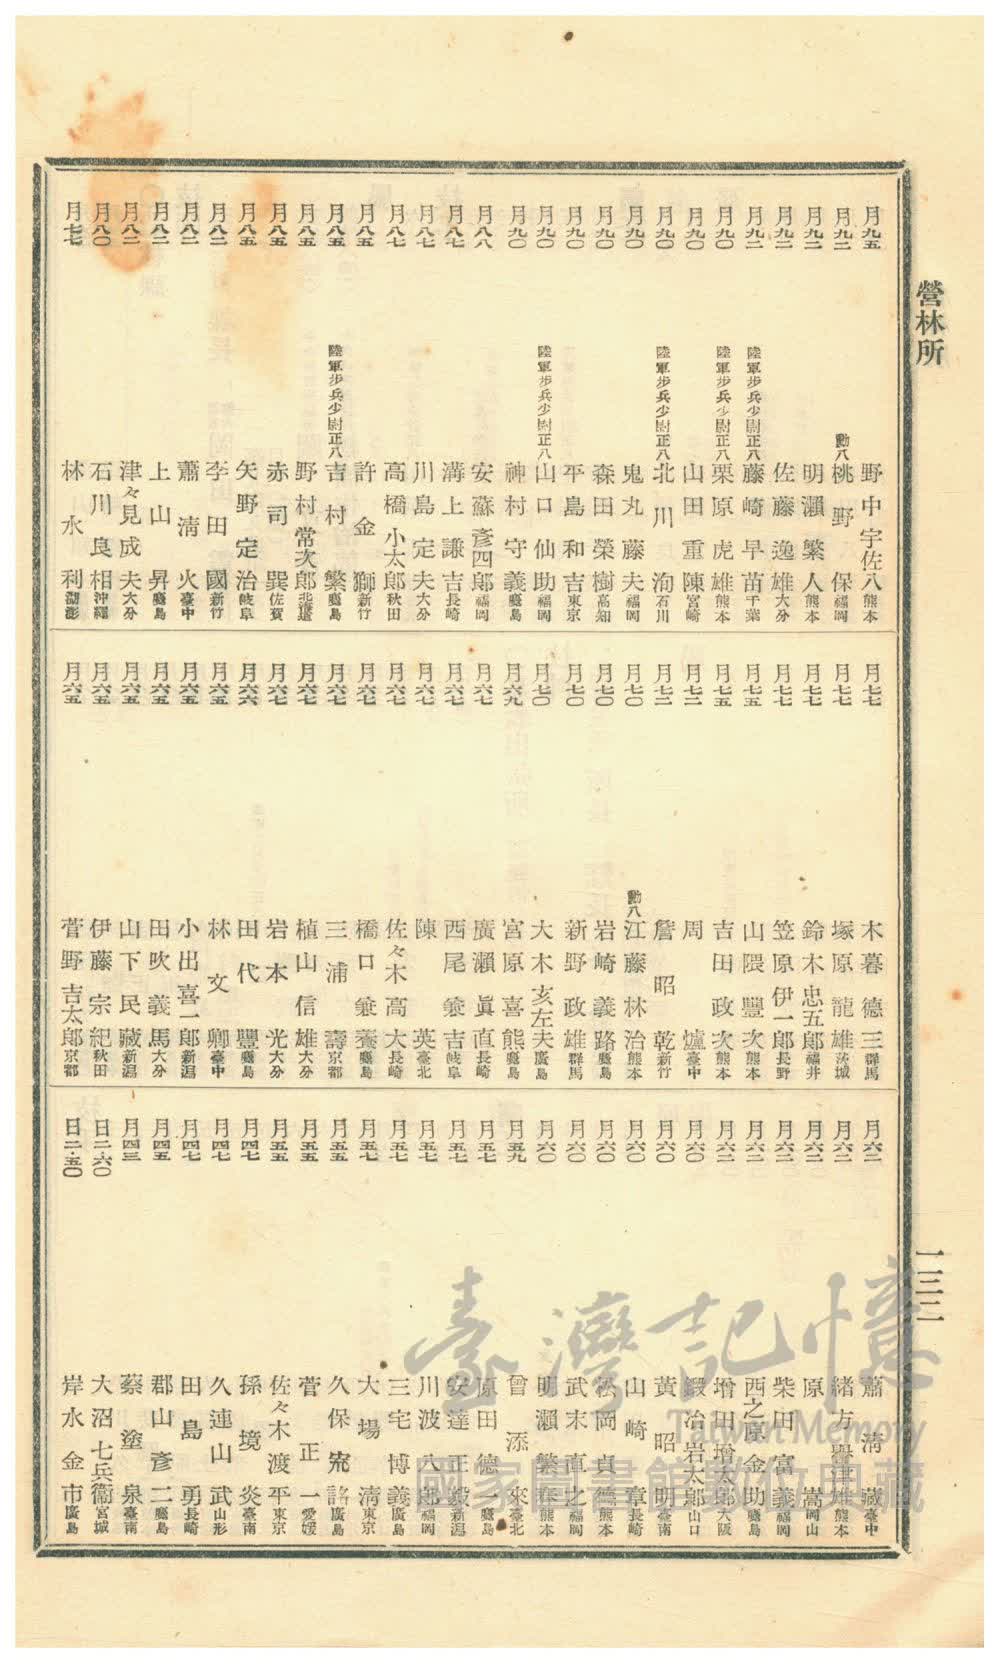 營林所
一三二
月九五 野中宇佐八 熊本
月九二 勳八 桃野保 福岡
月九二 明瀨繁人 熊本
月九二 佐藤逸雄 大分
月九二 陸軍步兵少尉正八 藤崎早苗 千葉
月九〇 陸軍步兵少尉正八 栗原虎雄 熊本
月九〇 山田重陳 宮崎
月九〇 陸軍步兵少尉正八 北川洵 石川
月九〇 鬼丸藤夫 福岡
月九〇 森田榮樹 高知
月九〇 平島和吉 東京
月九〇 陸軍步兵少尉正八 山口仙助 福岡
月九〇 神村守義 鹿島
月八八 安蘇彥四郎 福岡
月八七 溝上謙吉 長崎
月八七 川島定夫 大分
月八七 高橋小太郎 秋田
月八五 許金獅 新竹
月八五 陸軍步兵少尉正八 吉村繁 鹿島
月八五 野村常次郎 北海道
月八五 赤司巽 佐賀
月八五 矢野定治 岐阜
月八二 李田國 新竹
月八二 蕭淸火 臺中
月八二 上山昇 鹿島
月八二 津々見成夫 大分
月八〇 石川良相 沖繩
月七七 林水利 澎湖
月七七 木暮德三 群馬
月七七 塚原龍雄 茨城
月七七 鈴木忠五郎 福井
月七七 笠原伊一郎 長野
月七五 山隈豐次 熊本
月七五 吉田政次 熊本
月七二 周爐 臺中
月七二 詹昭乾 新竹
月七〇 勳八 江藤林治 熊本
月七〇 岩崎義路 鹿島
月七〇 新野政雄 群馬
月七〇 大木亥左夫 廣島
月六九 宮原喜熊 鹿島
月六七 廣瀨眞直 長崎
月六七 西尾兼吉 岐阜
月六七 陳英 臺北
月六七 佐々木高大 長崎
月六七 橋口兼養 鹿島
月六七 三浦壽 京都
月六七 植山信雄 大分
月六七 岩本光 大分
月六六 田代豐 鹿島
月六五 林文卿 臺中
月六五 小出喜一郎 新潟
月六五 田吹義馬 大分
月六五 山下民藏 新潟
月六五 伊藤宗紀 秋田
月六五 菅野吉太郎 京都
月六二 蕭淸藏 臺中
月六二 緖方譽津雄 熊本
月六二 原嵩 岡山
月六二 柴田富義 福岡
月六二 西之原金助 鹿島
月六二 增田增太郎 大阪
月六〇 鍛冶岩太郎 山口
月六〇 黃昭明 臺南
月六〇 山崎章 長崎
月六〇 松岡貞德 熊本
月六〇 武末直之 福岡
月六〇 明瀨繁春 熊本
月五九 曾添來 臺北
月五七 原田德一 鹿島
月五七 安達正毅 新潟
月五七 川波八郎 福岡
月五七 三宅博義 廣島
月五七 大場淸 東京
月五五 久保諮 廣島
月五五 菅正一 愛媛
月五五 佐々木渡平 東京
月四七 孫境炎 臺南
月四七 久連山武 山形
月四七 田島勇 長崎
月四五 郡山彥二 鹿島
月四三 蔡塗泉 臺南
日二・六〇 大沼七兵衞 宮城
日二・五〇 岸水金市 廣島
臺灣記憶
Taiwan Memory
國家圖書館數位典藏